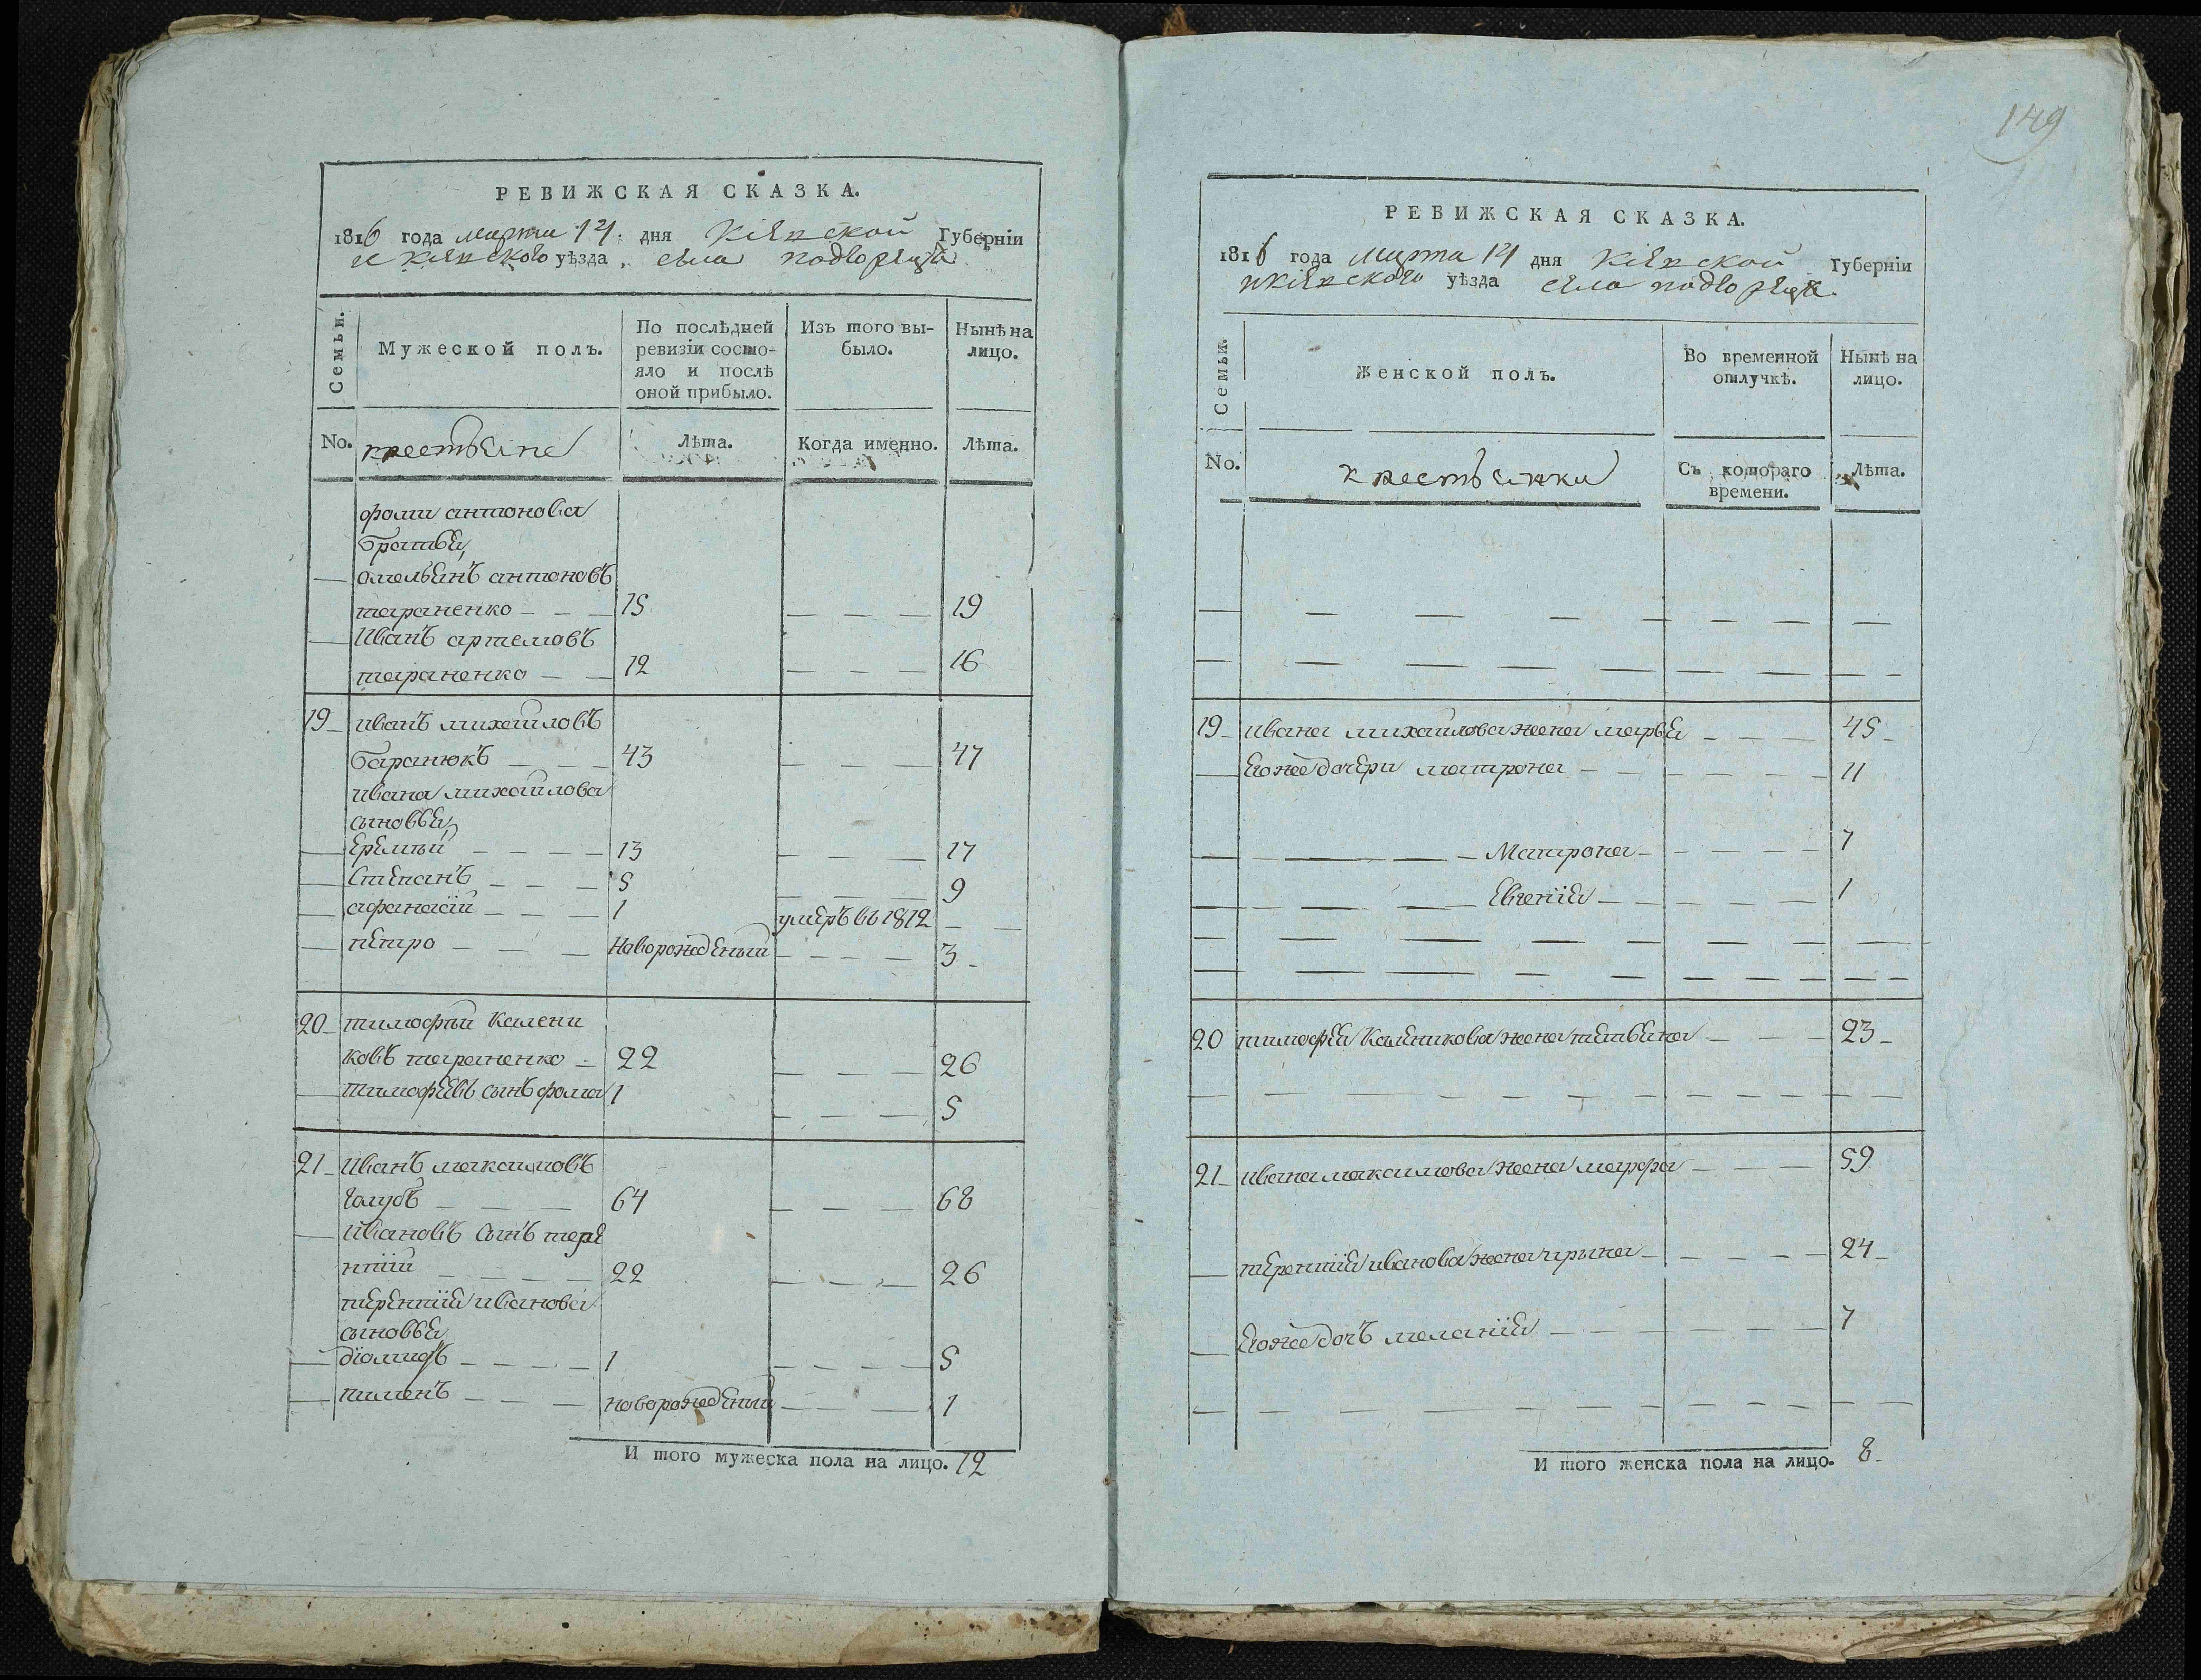 РЕВИЖСКАЯ СКАЗКА.
1816 года марта 14. дня Кіевской Губерніи
и кіевского уѣзда, села подгорцовъ
Семьи.
Мужеской полъ.
По послѣдней ревизіи состо-
яло и послѣ
оной прибыло.
Изъ того вы-
было.
Нынѣ на
лицо.
No. крестьяне Лѣта. Когда именно. Лѣта.
фомы антонова
братья,
омельянъ антоновъ
тараненко — — — 15 — — — 19
Иванъ артемовъ
тараненко — — 12 — — — 16
19 иванъ михайловъ
баранюкъ — — — 43 — — — 47
ивана михайлова
сыновья,
еремѣй — — — — 13 — — — 17
Степанъ — — — 5 — — — 9
афанасій — — — 1 умеръ въ 1812 — —
петро — — — новорожденый — — — — 3
20 тимофѣй калени
ковъ тараненко — 22 — — — 26
тимофеевъ сынъ фома 1 — — — 5
21 Иванъ максимовъ
голубъ — — — 64 — — — 68
ивановъ сынъ тере
нтій — — — — 22 — — — 26
терентія иванова
сыновья
діомидъ — — — — 1 — — — — 5
пименъ — — — новорожденый — — — 1
И того мужеска пола на лицо. 12
149
РЕВИЖСКАЯ СКАЗКА.
1816 года марта 14 дня Кіевской Губерніи
и кіевского уѣзда села подгорцовъ
Семьи.
Женской полъ.
Во временной
отлучкѣ.
Нынѣ на
лицо.
No. крестьянки Съ котораго
времени. Лѣта.
19 ивана михайлова жена марья — — — 45
его же дочери матрона — — — — — 11
Матрона — — — — — 7
Евгенія — — — — — 1
20 тимофея каленикова жена татьяна — — — 23
21 ивана максимова жена марфа — — — 59
терентія иванова жена ирына — — — — 24
его же дочъ меланія — — — — — 7
И того женска пола на лицо. 8